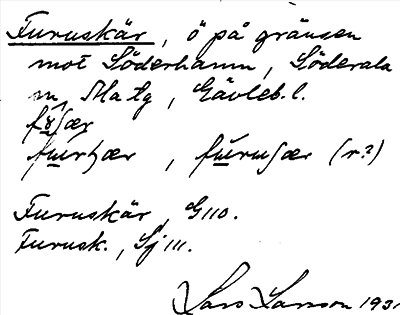 Furuskär, ö på gränsen
mot Söderhamn, Söderala
sn, Ma tg, Gävleb. l.
furuſær (r?)
Furuskär, G 110.
Furusk., Sj 111.
Lars Larsson 1931